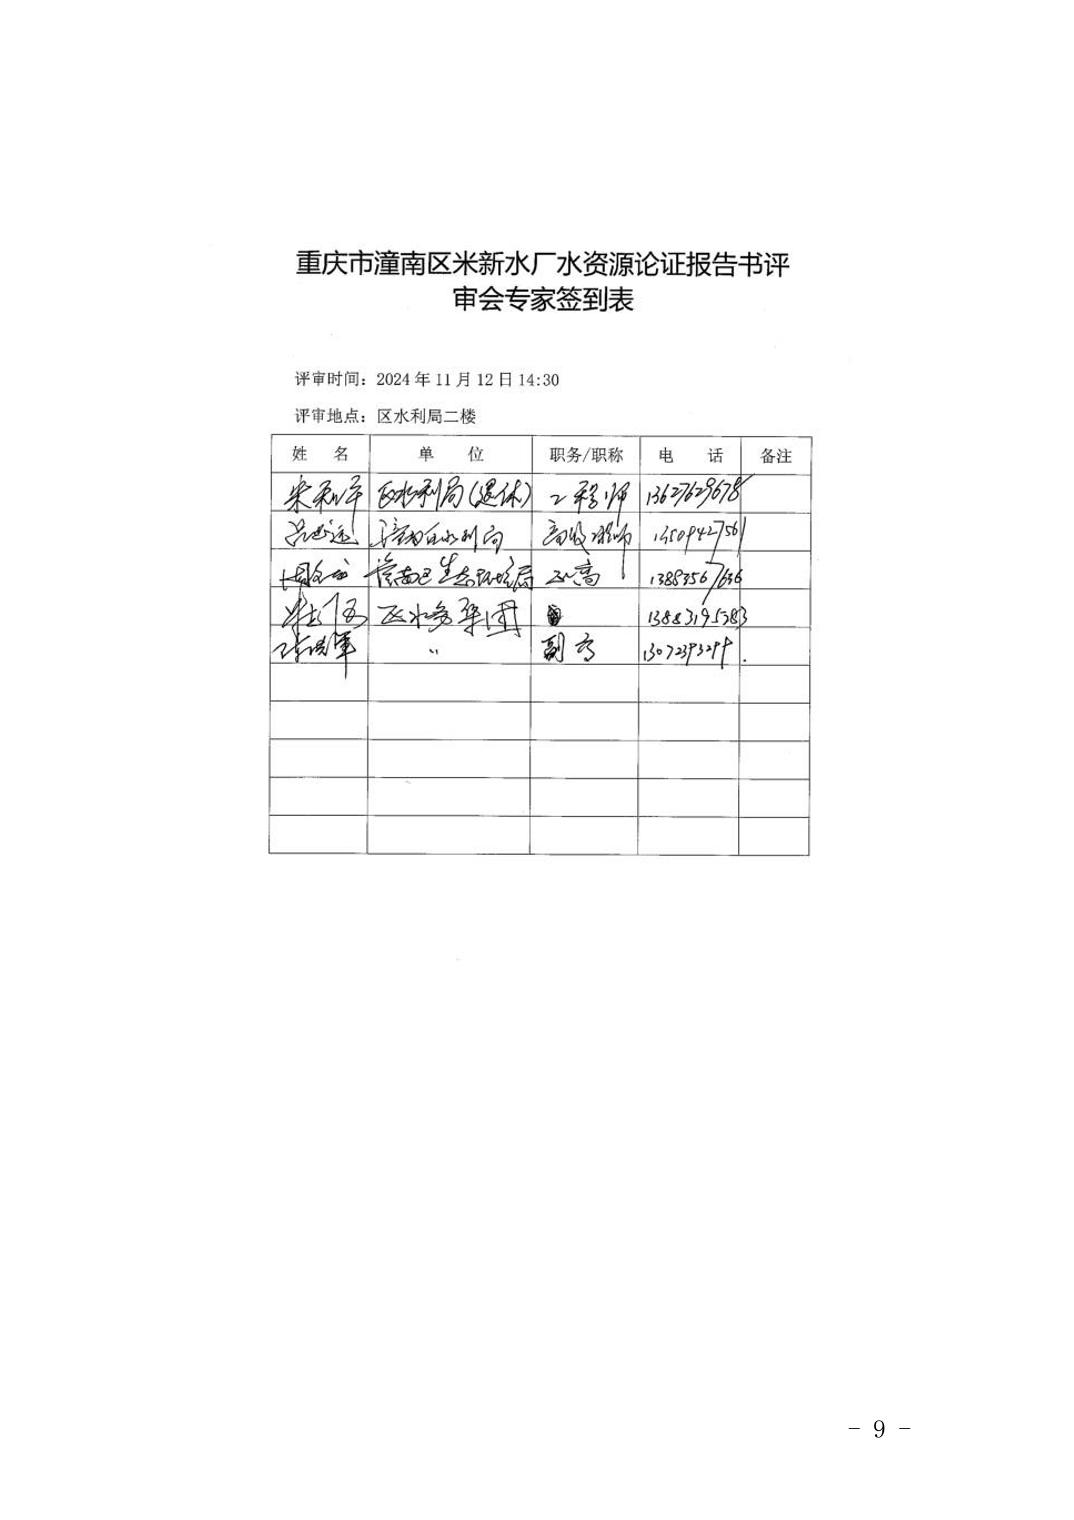 重庆市潼南区米新水厂水资源论证报告书评
审会专家签到表
评审时间：2024年11月12日14:30
评审地点：区水利局二楼
姓 名 单 位 职务/职称 电 话 备注
区水利局（退休） 工程师 13627629678
潼南区水利局 高级工程师 13509427561
潼南区生态环境局 正高 13883567636
区水务集团 13883195283
〃 副高
- 9 -